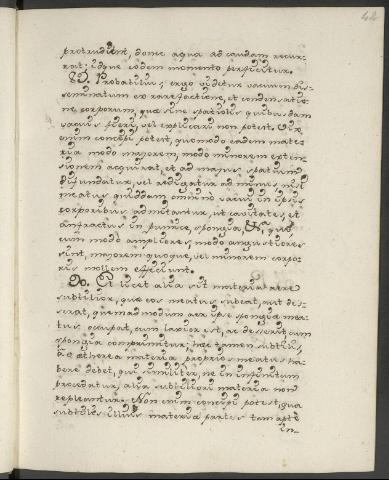 42
protruditur, donec aqua ad caudam recur-
rat; idque eodem momento perficitur.
89. Probabilius, ergo videtur vacuum dis-
seminatum ex rarefactione, et condensatio-
ne corporum, quae sine spatiolis quibusdam
vacuis fieri, vel explicari non potest. Quae
enim concipi potest, quomodo eadem mate-
ria modo majorem, modo minorem exten-
sionem acquirat, et ad majus spatium
diffundatur, vel redigatur ad minus nisi
meatus quiddam omnino vacui in ipsis
corporibus admitantur, ut cavitates, et
anfractus in pumice, spongia, &c, quo
cum modo ampliores, modo angustiores
sint, majorem quoque, vel minorem corpo-
ris mollem efficiunt.
90. Et licet alia sit materia aere
subtilior, quae eos meatus subeat, aut des-
erat, quemadmodum aer ipse spongiae mea-
tus occupat, cum laxior est, ac deserit, cum
spongia comprimitur; haec tamen subtilis,
ac aetherea materia proprios meatus ha-
bere debet, qui similiter, ne in infinitum
procedatur, alia subtiliori materia non
repleantur. Non enim concipi potest, qua
subtiles illius materia partes tam apte
in-